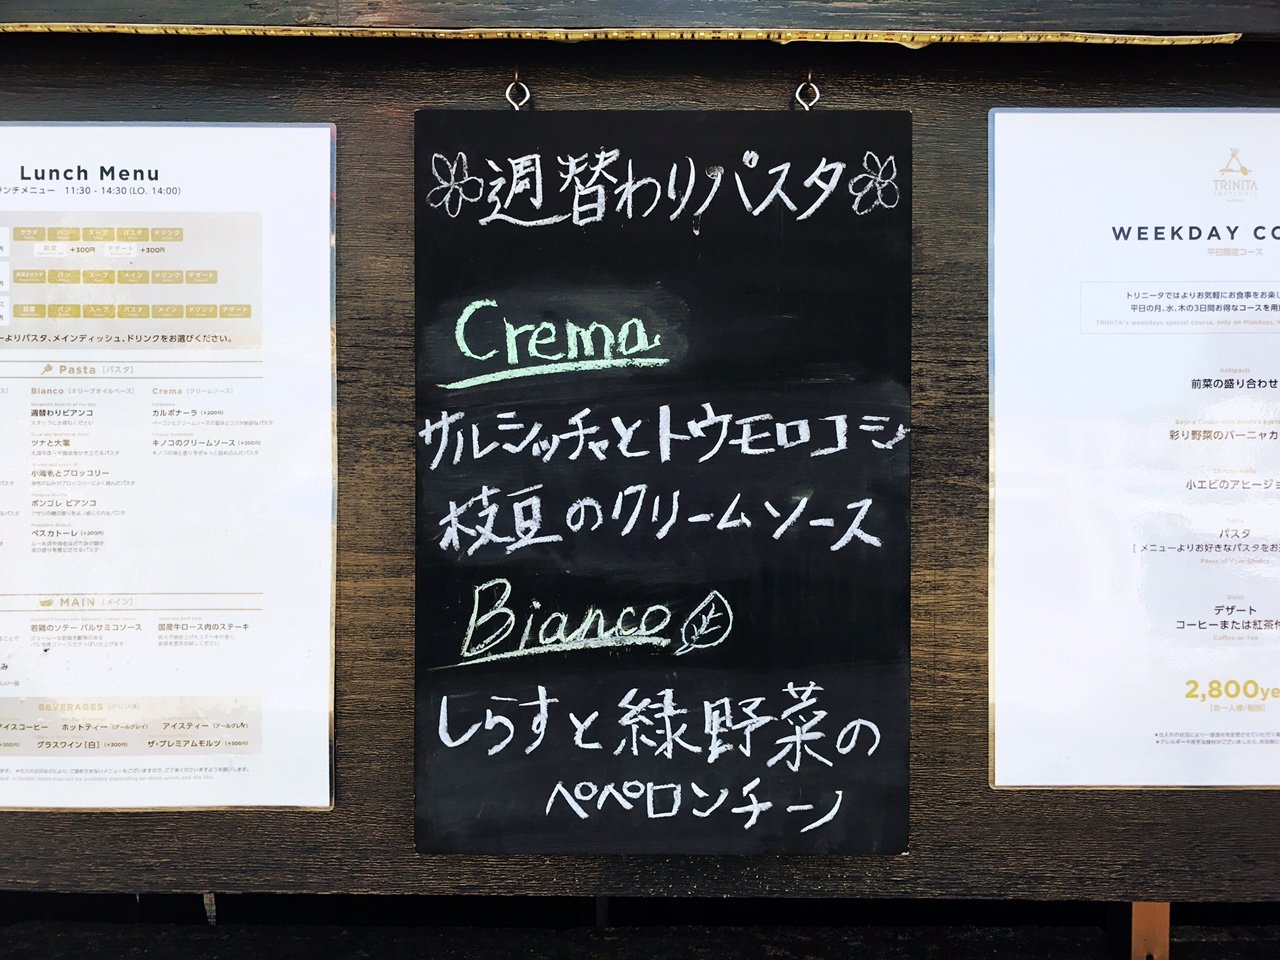 Lunch Menu
ランチメニュー 11:30 - 14:30 (LO. 14:00)
サラダ パン スープ パスタ ドリンク
前菜 +300円 デザート +300円
パン スープ メイン ドリンク デザート
前菜 パン スープ パスタ メイン ドリンク デザート
ーよりパスタ、メインディッシュ、ドリンクをお選びください。
Pasta [パスタ]
Bianco [オリーブオイルベース]
週替わりビアンコ
スタッフにお尋ねください
ツナと大葉
小海老とブロッコリー
ボンゴレ ビアンコ
ペスカトーレ (+200円)
Crema [クリームソース]
カルボナーラ (+200円)
キノコのクリームソース (+200円)
MAIN [メイン]
若鶏のソテー バルサミコソース
国産牛ロース肉のステーキ
BEVERAGES [ドリンク]
アイスコーヒー ホットティー (アールグレイ) アイスティー (アールグレイ)
グラスワイン [白] (+300円) ザ・プレミアムモルツ (+500円)
週替わりパスタ
Crema
サルシッチャとトウモロコシ
枝豆のクリームソース
Bianco
しらすと緑野菜の
ペペロンチーノ
TRINITA
WEEKDAY CO
平日限定コース
トリニータではよりお気軽にお食事をお楽し
平日の月、水、木の3日間お得なコースを用
TRINITA's weekdays special course, only on Mondays,
Antipasti
前菜の盛り合わせ
彩り野菜のバーニャカ
小エビのアヒージョ
Pasta
パスタ
[ メニューよりお好きなパスタをお選
Pasta of Your Choice
Dolci
デザート
コーヒーまたは紅茶付
Coffee or tea
2,800ye
[お一人様/税別]